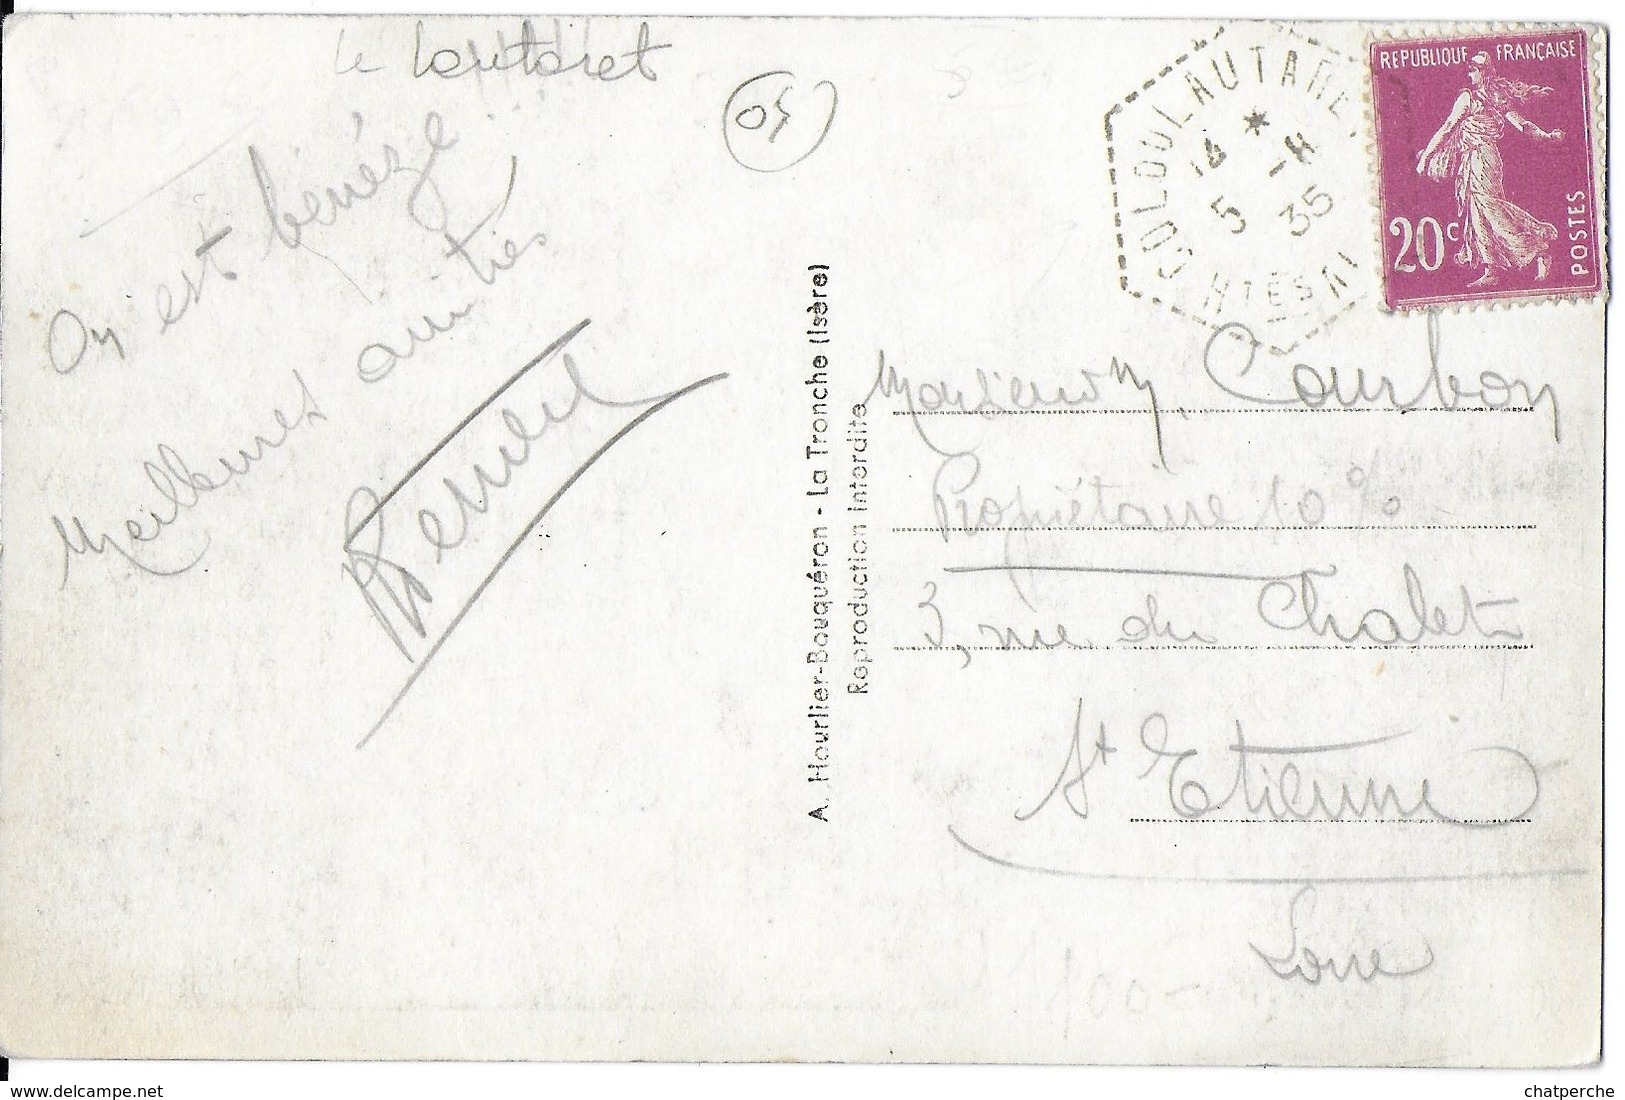 le Lautaret
05
On est bénéze...
Meilleures amitiés
A. Hourlier-Bouquéron - La Tronche (Isère)
Reproduction Interdite
COL DU LAUTARET
14 * -8
5 35
HTES AL
REPUBLIQUE FRANÇAISE
20c
POSTES
Monsieur M. Courbon
Propriétaire 10 %
3, rue du Chalet
St Etienne
Loire
100-
chatperche